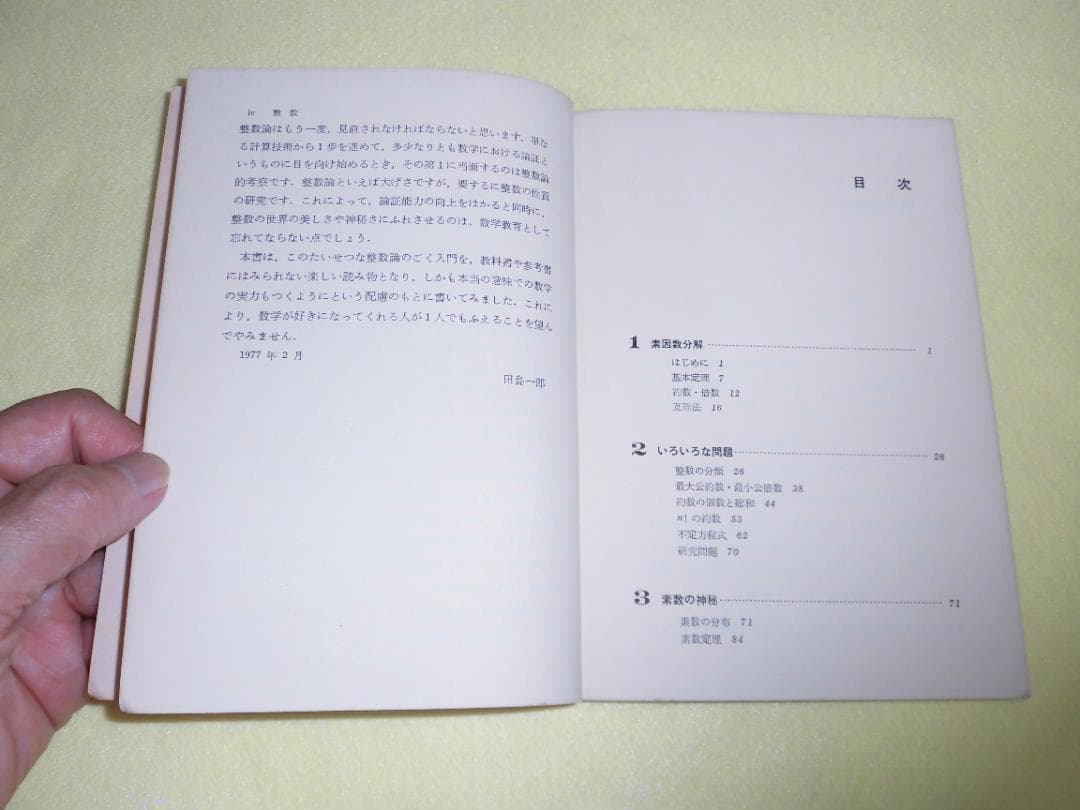 iv 整数
整数論はもう一度，見直されなければならないと思います．単な
る計算技術から1歩を進めて，多少なりとも数学における論証と
いうものに目を向け始めるとき，その第1に当面するのは整数論
的考察です．整数論といえば大げさですが，要するに整数の性質
の研究です．これによって，論証能力の向上をはかると同時に，
整数の世界の美しさや神秘さにふれさせるのは，数学教育として
忘れてならない点でしょう．
本書は，このたいせつな整数論のごく入門を，教科書や参考書
にはみられない楽しい読み物となり，しかも本当の意味での数学
の実力もつくようにという配慮のもとに書いてみました．これに
より，数学が好きになってくれる人が1人でもふえることを望ん
でやみません．
1977年2月
田島一郎
目次
1 素因数分解 1
はじめに 1
基本定理 7
約数・倍数 12
互除法 16
2 いろいろな問題 26
整数の分類 26
最大公約数・最小公倍数 38
約数の個数と総和 44
n！の約数 53
不定方程式 62
研究問題 70
3 素数の神秘 71
素数の分布 71
素数定理 84